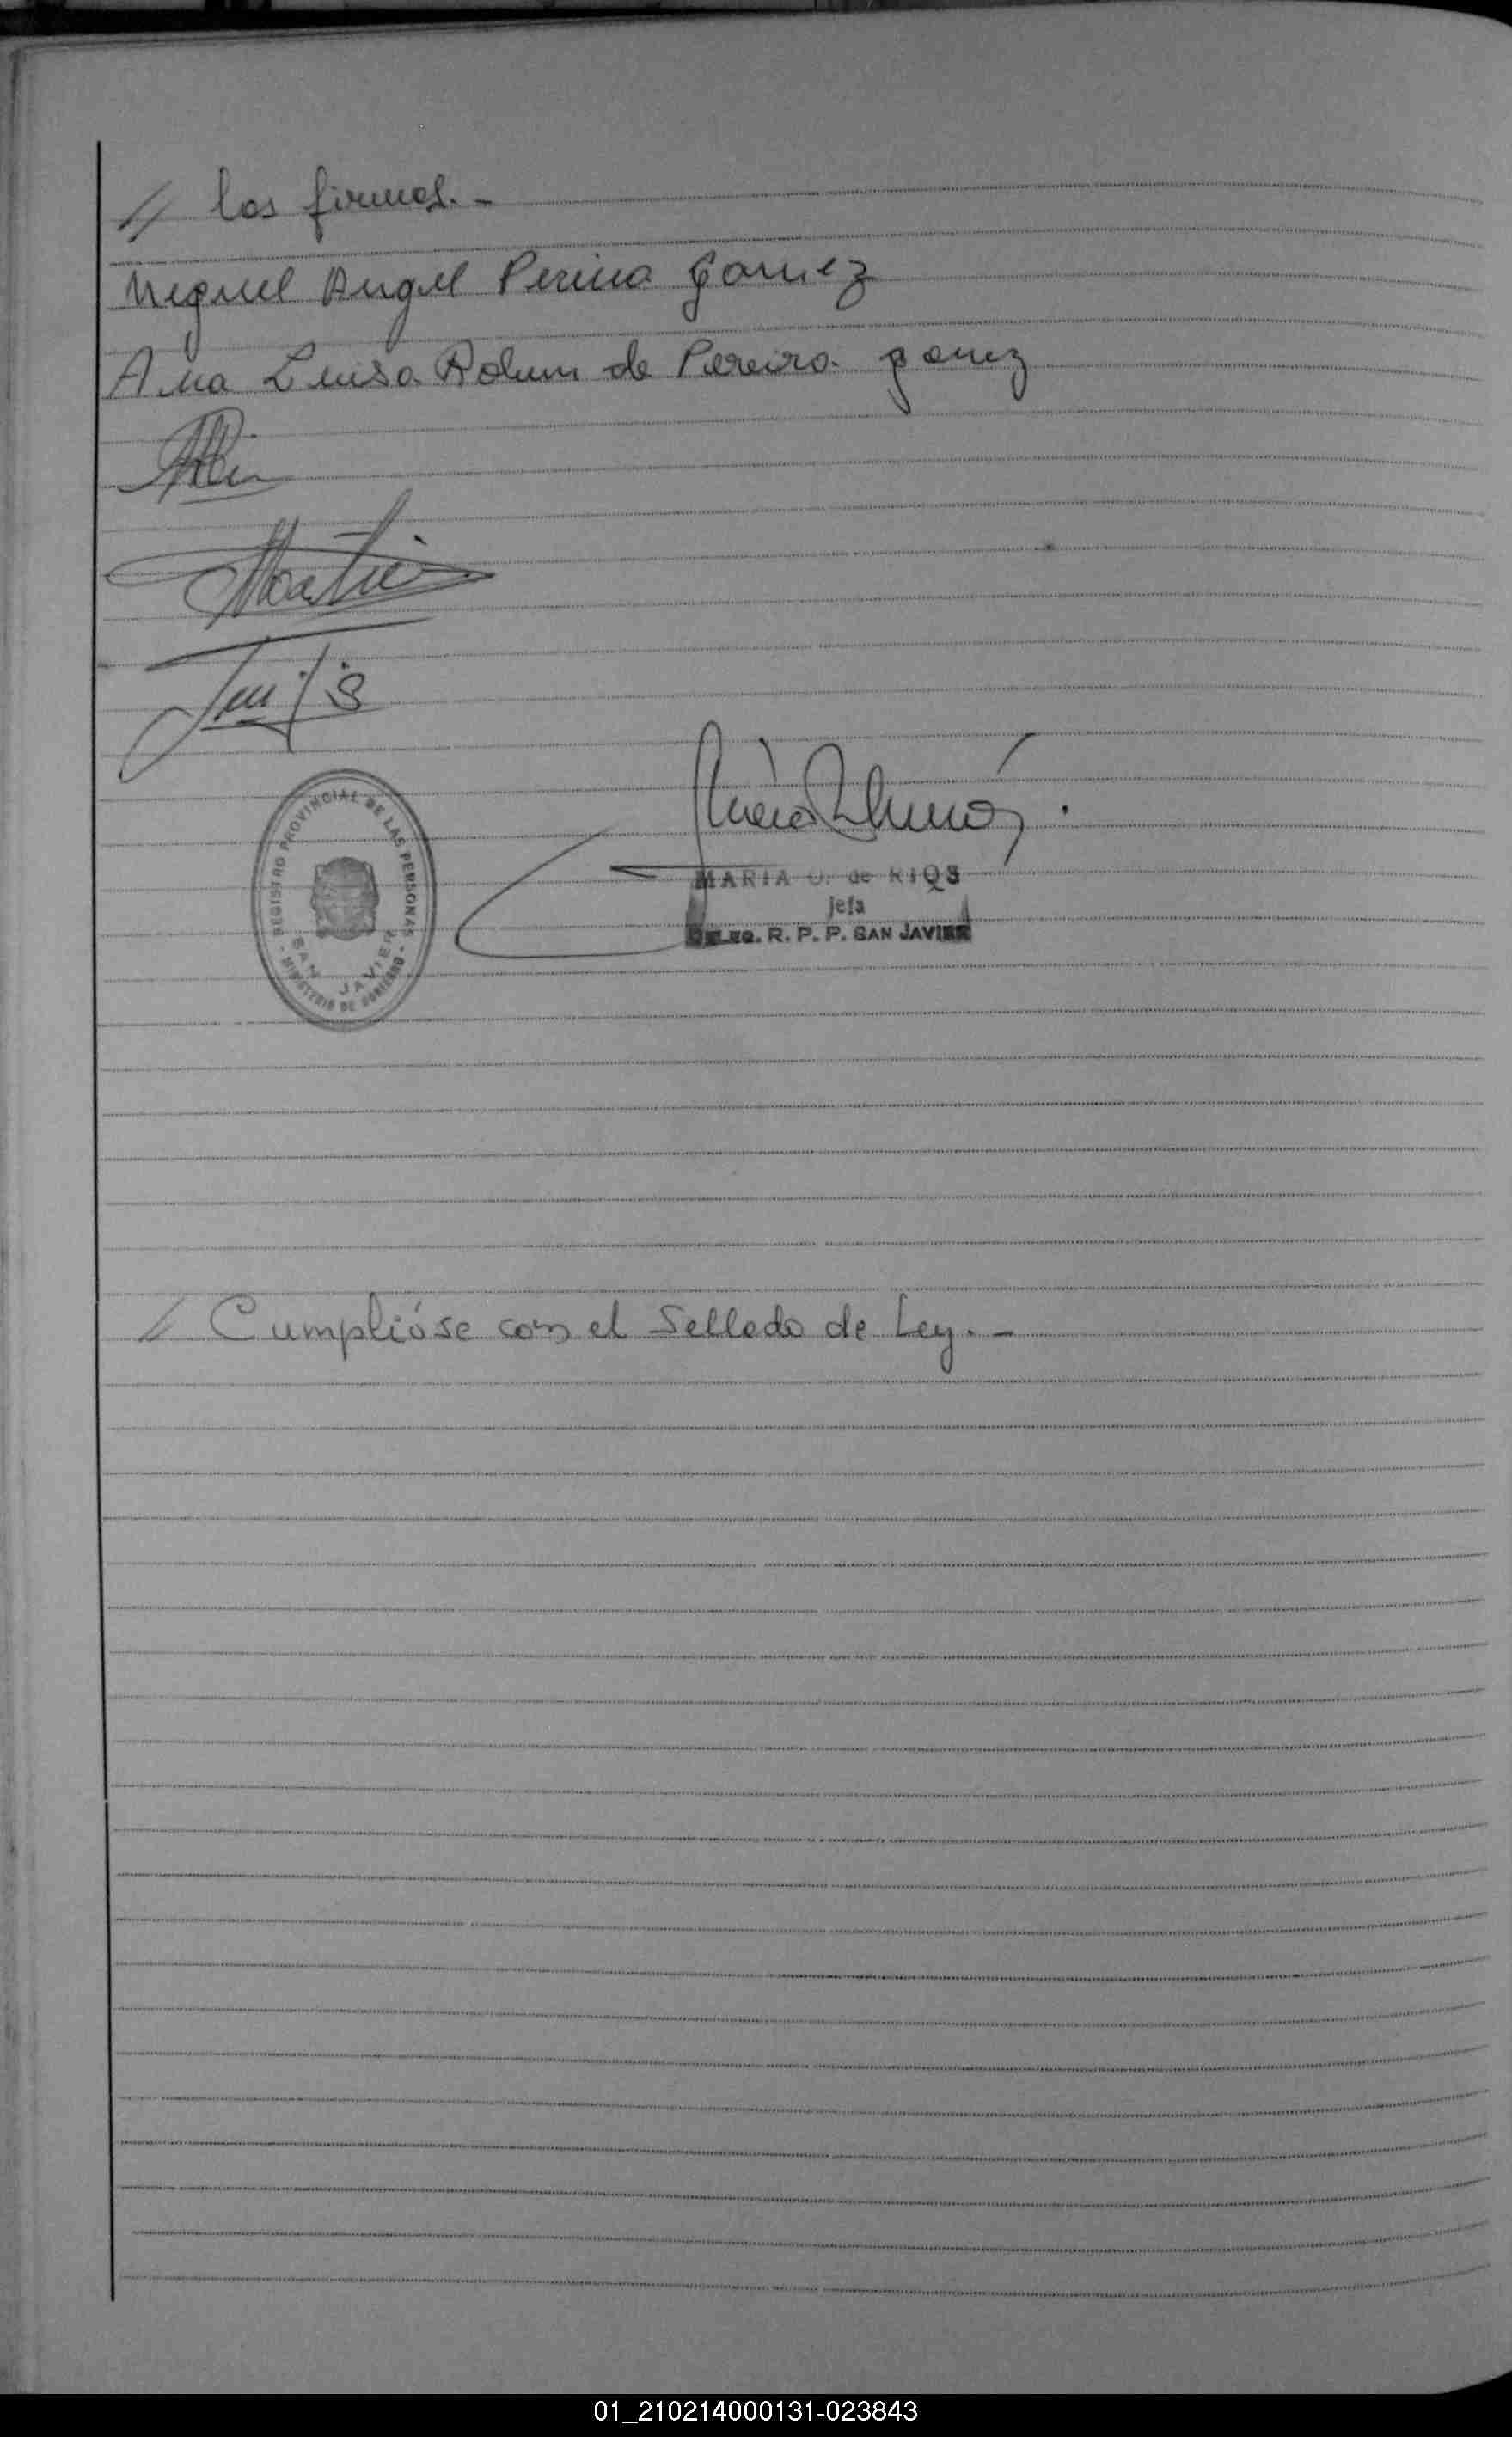 // las firmas. -
Miguel Angel Pereira Gomez
Ana Luisa Rolum de Pereira gomez
REGISTRO PROVINCIAL DE LAS PERSONAS
SAN JAVIER
- MINISTERIO DE GOBIERNO -
MARIA O. de RIOS
Jefa
DELEG. R. P. P. SAN JAVIER
/ Cumplióse con el Sellado de Ley. -
01_210214000131-023843